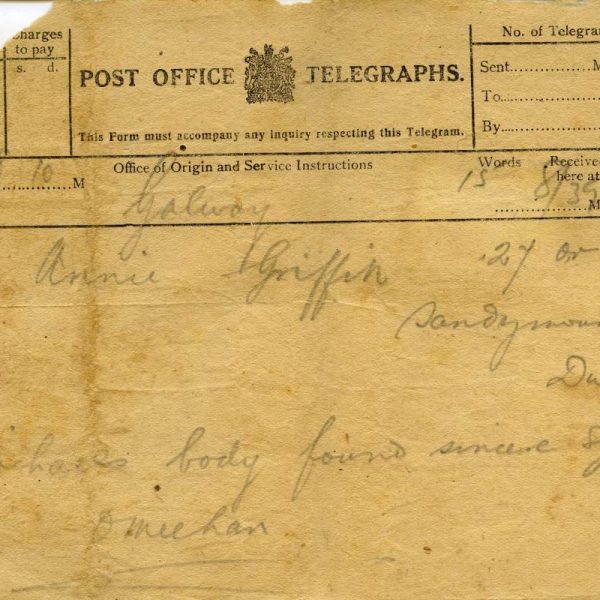 Charges
to pay
s. d.
POST OFFICE TELEGRAPHS.
This Form must accompany any inquiry respecting this Telegram.
No. of Telegra
Sent
M
To
By
10 M
Office of Origin and Service Instructions
Words
Received
here at
Galway
15
8/39
M
Annie Griffin
27 or
Sandymoun
Du
ichaels body found sincere sy
O Meehan